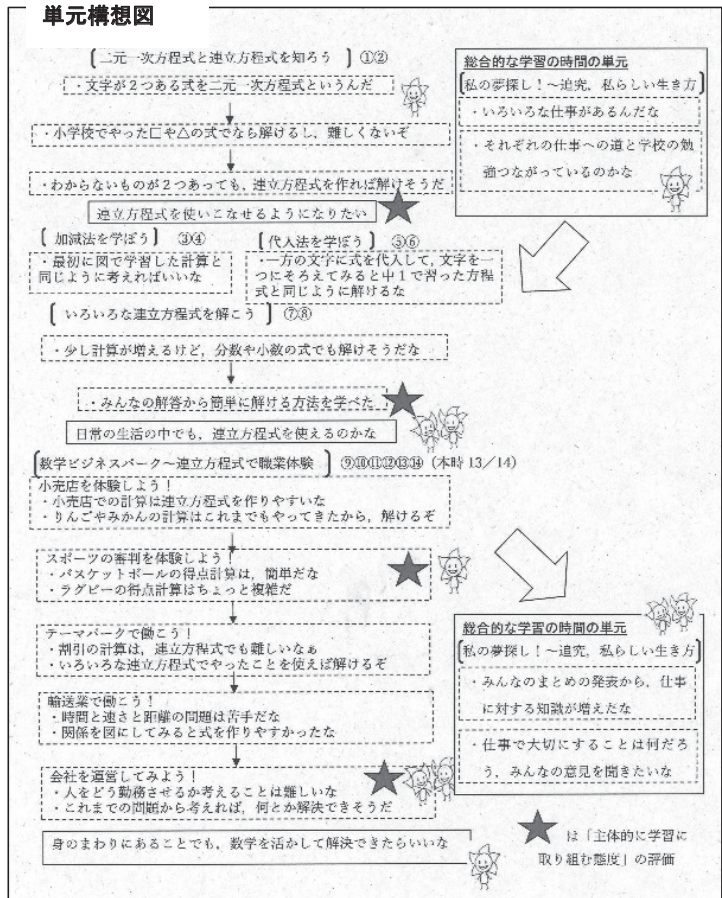 単元構想図
〔二元一次方程式と連立方程式を知ろう〕①②
・文字が2つある式を二元一次方程式というんだ
・小学校でやった□や△の式でなら解けるし，難しくないぞ
・わからないものが2つあっても，連立方程式を作れば解けそうだ
連立方程式を使いこなせるようになりたい
〔加減法を学ぼう〕③④
・最初に図で学習した計算と
同じように考えればいいな
〔代入法を学ぼう〕⑤⑥
・一方の文字に式を代入して，文字を一
つにそろえてみると中1で習った方程
式と同じように解けるな
〔いろいろな連立方程式を解こう〕⑦⑧
・少し計算が増えるけど，分数や小数の式でも解けそうだな
・みんなの解答から簡単に解ける方法を学べた
日常の生活の中でも，連立方程式を使えるのかな
〔数学ビジネスパーク～連立方程式で職業体験〕⑨⑩⑪⑫⑬⑭（本時 13／14）
小売店を体験しよう！
・小売店での計算は連立方程式を作りやすいな
・りんごやみかんの計算はこれまでもやってきたから，解けるぞ
スポーツの審判を体験しよう！
・バスケットボールの得点計算は，簡単だな
・ラグビーの得点計算はちょっと複雑だ
テーマパークで働こう！
・割引の計算は，連立方程式でも難しいなぁ
・いろいろな連立方程式でやったことを使えば解けるぞ
輸送業で働こう！
・時間と速さと距離の問題は苦手だな
・関係を図にしてみると式を作りやすかったな
会社を運営してみよう！
・人をどう勤務させるか考えることは難しいな
・これまでの問題から考えれば，何とか解決できそうだ
身のまわりにあることでも，数学を活かして解決できたらいいな
総合的な学習の時間の単元
〔私の夢探し！～追究，私らしい生き方〕
・いろいろな仕事があるんだな
・それぞれの仕事への道と学校の勉
強つながっているのかな
総合的な学習の時間の単元
〔私の夢探し！～追究，私らしい生き方〕
・みんなのまとめの発表から，仕事
に対する知識が増えたな
・仕事で大切にすることは何だろ
う，みんなの意見を聞きたいな
★は「主体的に学習に
取り組む態度」の評価